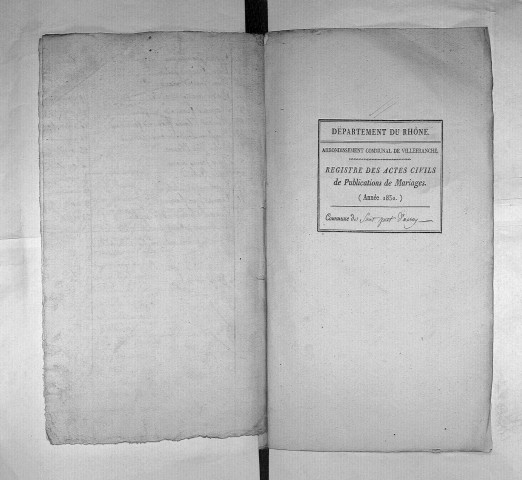 DÉPARTEMENT DU RHÔNE.
ARRONDISSEMENT COMMUNAL DE VILLEFRANCHE.
REGISTRE DES ACTES CIVILS
de Publications de Mariages.
( Année 1831. )
Commune de